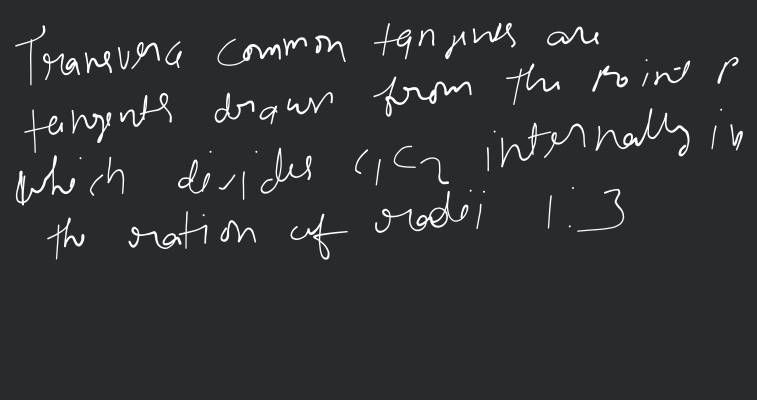 Transverse common tangents are
tangents drawn from the point P
which divides C1C2 internally in
the ration of radii 1:3